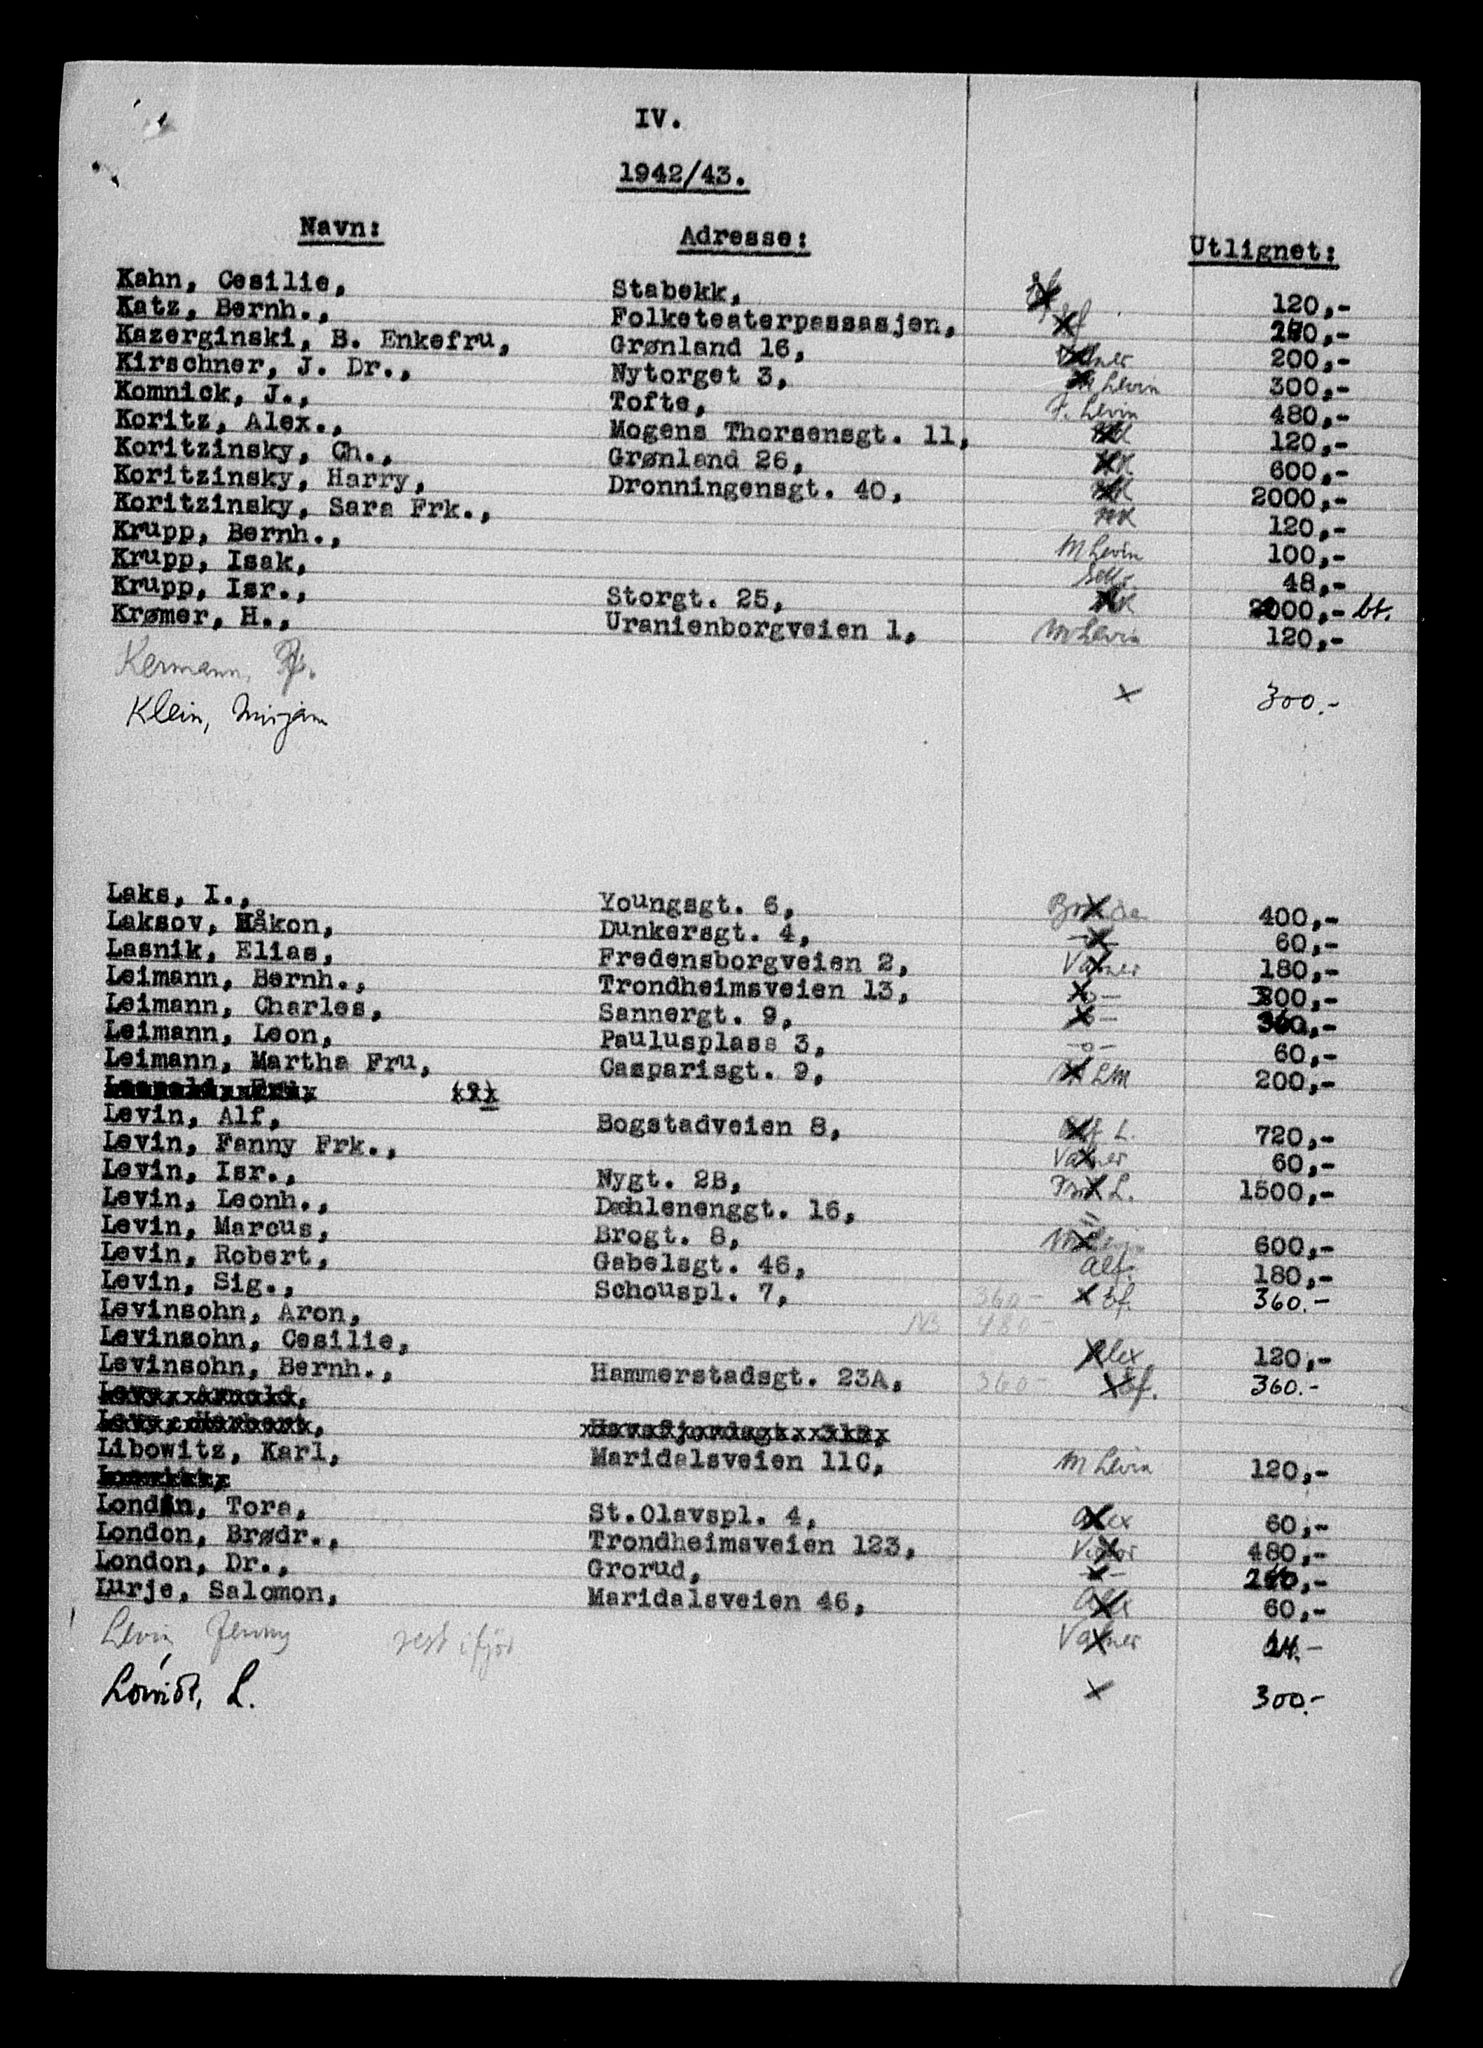 IV.
1942/43.
Navn: Adresse: Utlignet:
Kahn, Cesilie, Stabekk, 120,-
Katz, Bernh., Folketeaterpassasjen,
Kazerginski, B. Enkefru, Grønland 16, 200,-
Kirschner, J. Dr., Nytorget 3, Levin 300,-
Komnick, J., Tofte, F. Levin 480,-
Koritz, Alex., Mogens Thorsensgt. 11, 120,-
Koritzinsky, Ch., Grønland 26, 600,-
Koritzinsky, Harry, Dronningensgt. 40, 2000,-
Koritzinsky, Sara Frk., HK 120,-
Krupp, Bernh., M Levin 100,-
Krupp, Isak, 48,-
Krupp, Isr., Storgt. 25, 2000,- bt.
Krømer, H., Uranienborgveien 1, M Levin 120,-
Kermann,
Klein, Mirjam x 300.-
Laks, I., Youngsgt. 6, 400,-
Laksov, Håkon, Dunkersgt. 4, 60,-
Lasnik, Elias, Fredensborgveien 2, Vamer 180,-
Leimann, Bernh., Trondheimsveien 13, -o- 300,-
Leimann, Charles, Sannergt. 9, -o- 360,-
Leimann, Leon, Paulusplass 3, -o- 60,-
Leimann, Martha Fru, Casparisgt. 9, LM 200,-
Levin, Alf, Bogstadveien 8, Alf L. 720,-
Levin, Fanny Frk., Vamer 60,-
Levin, Isr., Nygt. 2B, L. 1500,-
Levin, Leonh., Dæhlenenggt. 16, "
Levin, Marcus, Brogt. 8, M Levin 600,-
Levin, Robert, Gabelsgt. 46, Alf. 180,-
Levin, Sig., Schouspl. 7, 360- x 360.-
Levinsohn, Aron, NB 480-
Levinsohn, Cesilie, Alex 120,-
Levinsohn, Bernh., Hammerstadsgt. 23A, 360 x 360.-
Levy, Arnold,
Levy, Herbert, Havsfjordsgt. 31B,
Libowitz, Karl, Maridalsveien 11C, M Levin 120,-
London, Tora, St.Olavspl. 4, Alex 60,-
London, Brødr., Trondheimsveien 123, Victor 480,-
London, Dr., Grorud, -"-
Lurje, Salomon, Maridalsveien 46, 60,-
Levin, Jenny rest ifjor Vamer 24.-
L. x 300.-